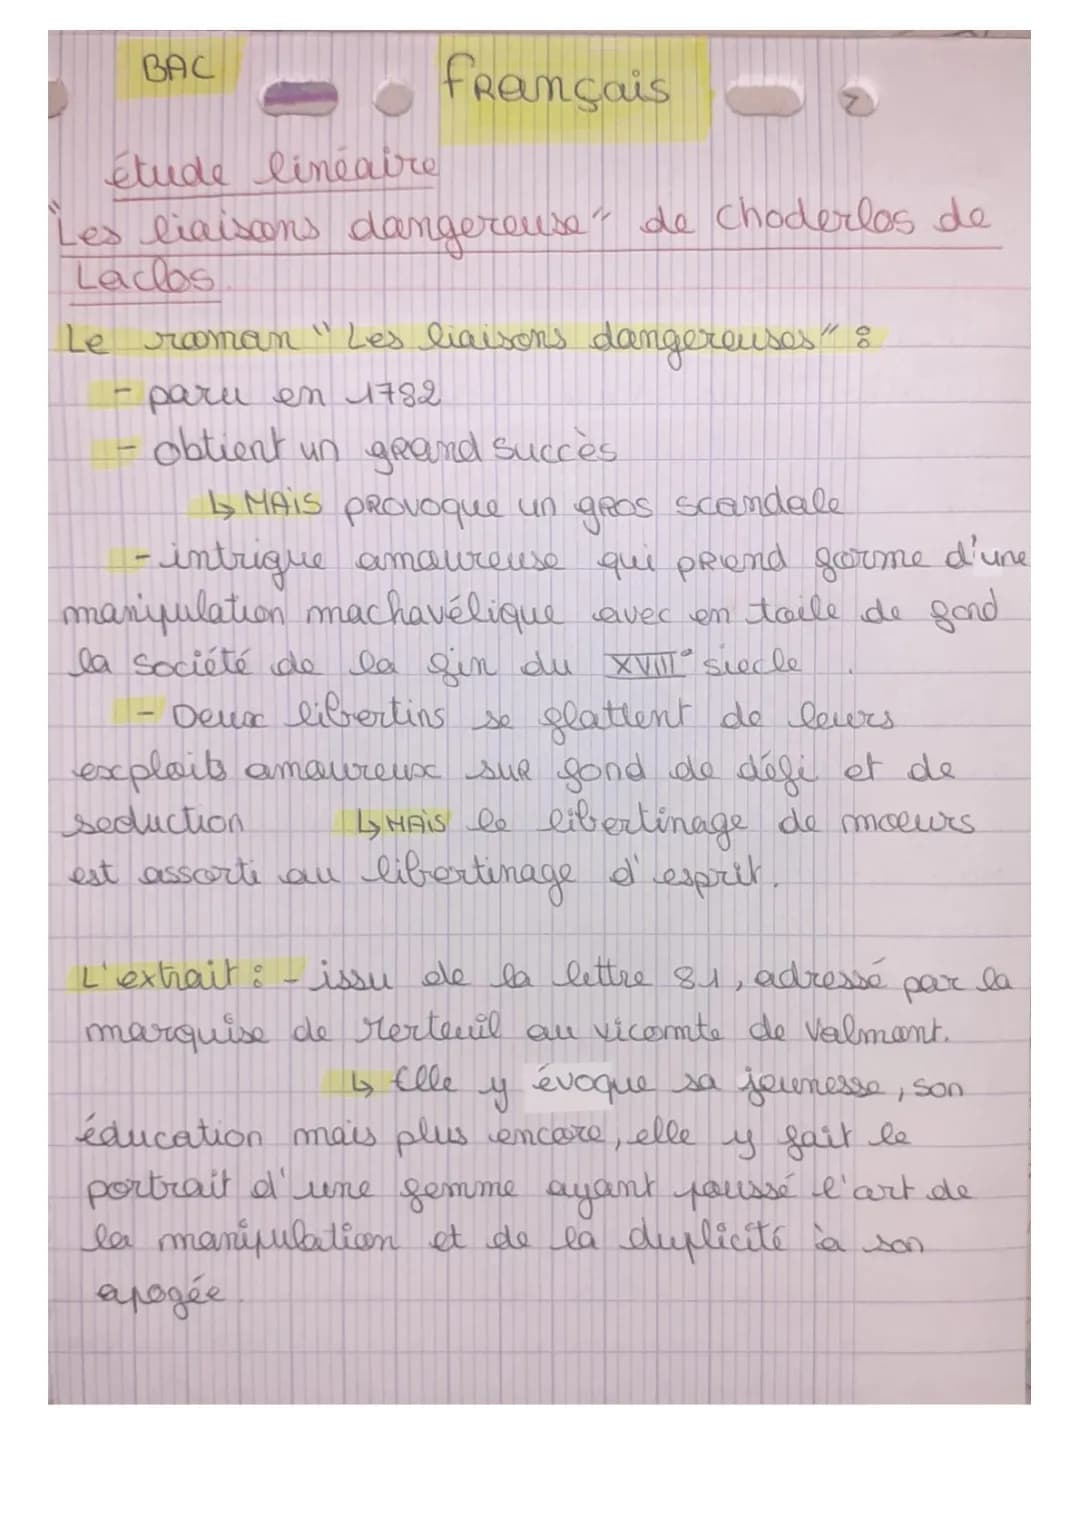 BAC
français
étude linéaire
"Les liaisons dangereuse" de Choderlos de
Laclos
Le roman "Les liaisons dangereuses" :
- paru en 1782
- obtient un grand succès
↳ MAIS provoque un gros scandale
- intrigue amoureuse qui prend forme d'une
manipulation machavélique avec en toile de fond
la société de la fin du XVIII° siecle
- Deux libertins se flattent de leurs
exploits amoureux sur fond de défi et de
seduction ↳ MAIS le libertinage de moeurs
est assorti au libertinage d'esprit.
L'extrait : - issu de la lettre 81, adressé par la
marquise de Merteuil au vicomte de Valmont.
↳ Elle y évoque sa jeunesse, son
éducation mais plus encore, elle y fait le
portrait d'une femme ayant poussé l'art de
la manipulation et de la duplicité à son
apogée.